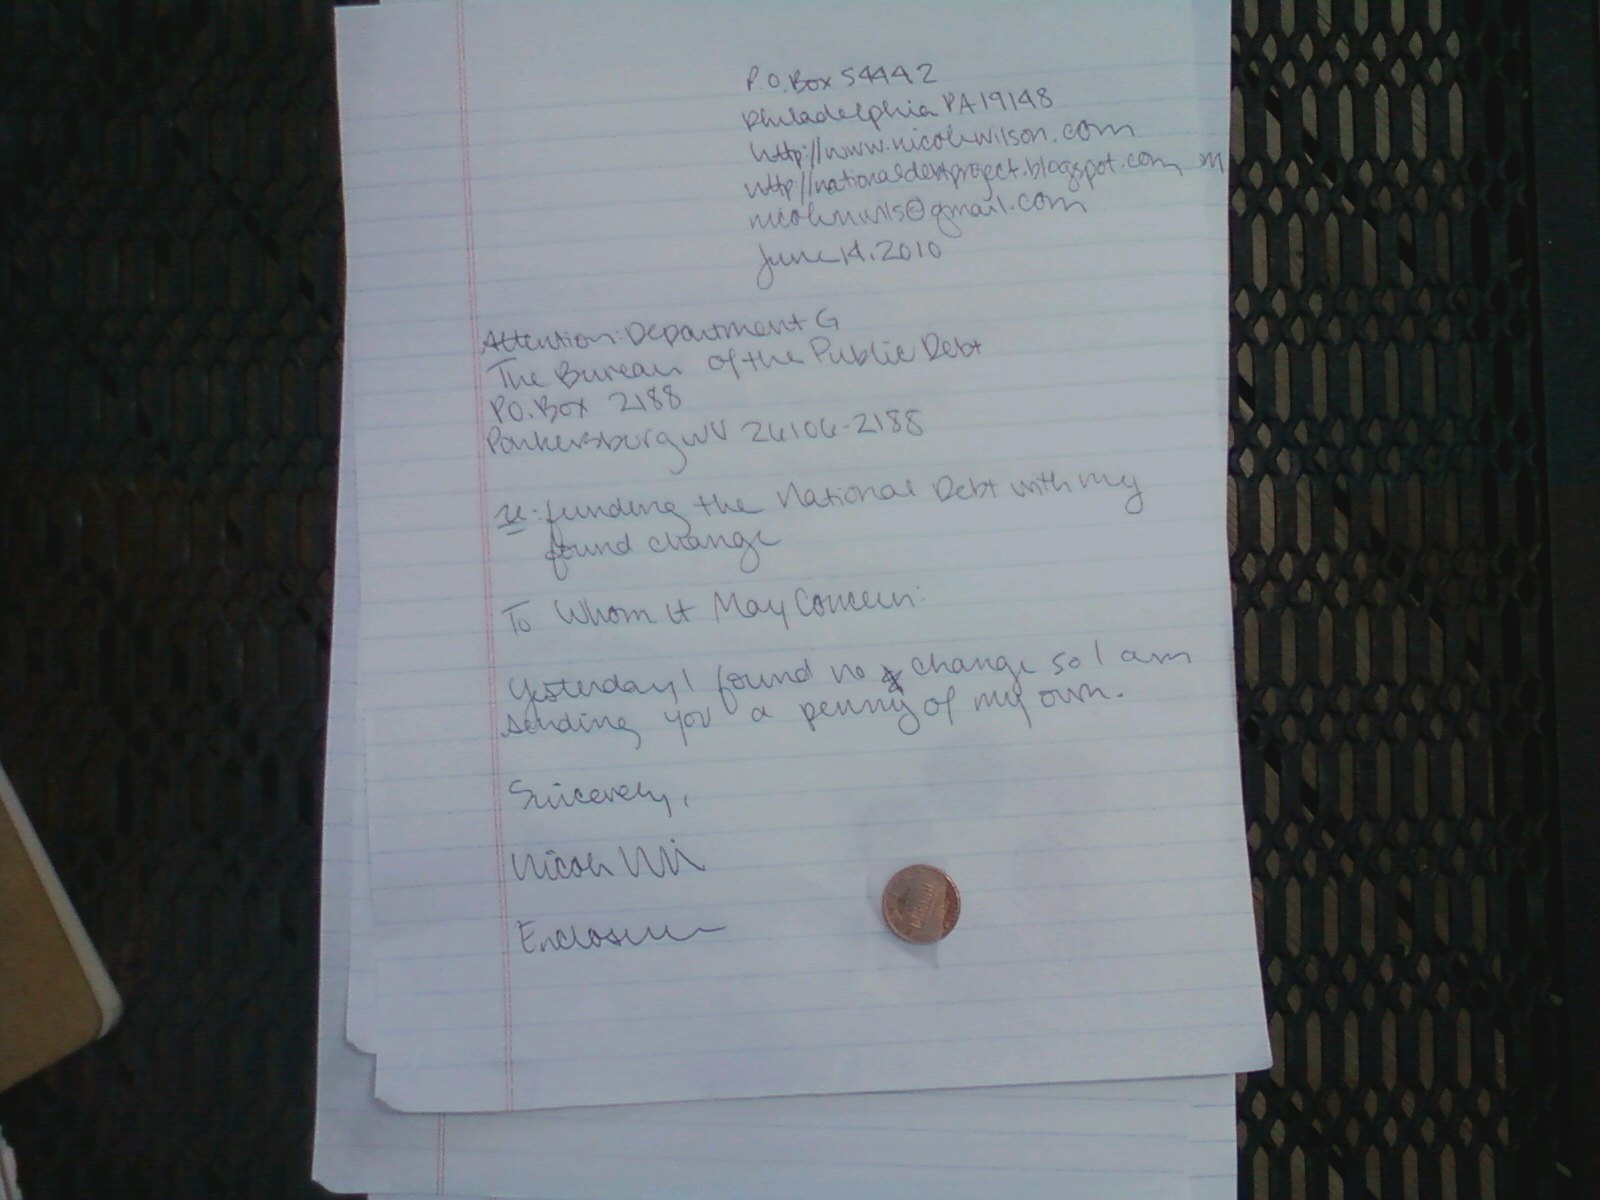 P.O. Box 54442
Philadelphia PA 19148
http://www.nicolewilson.com
http://nationaldebtproject.blogspot.com
nicolenwils@gmail.com
June 14, 2010
Attention: Department G
The Bureau of the Public Debt
P.O. Box 2188
Parkersburg WV 26106-2188
re: funding the National Debt with my
found change
To Whom It May Concern:
Yesterday I found no change so I am
sending you a penny of my own.
Sincerely,
Nicole
Enclosure